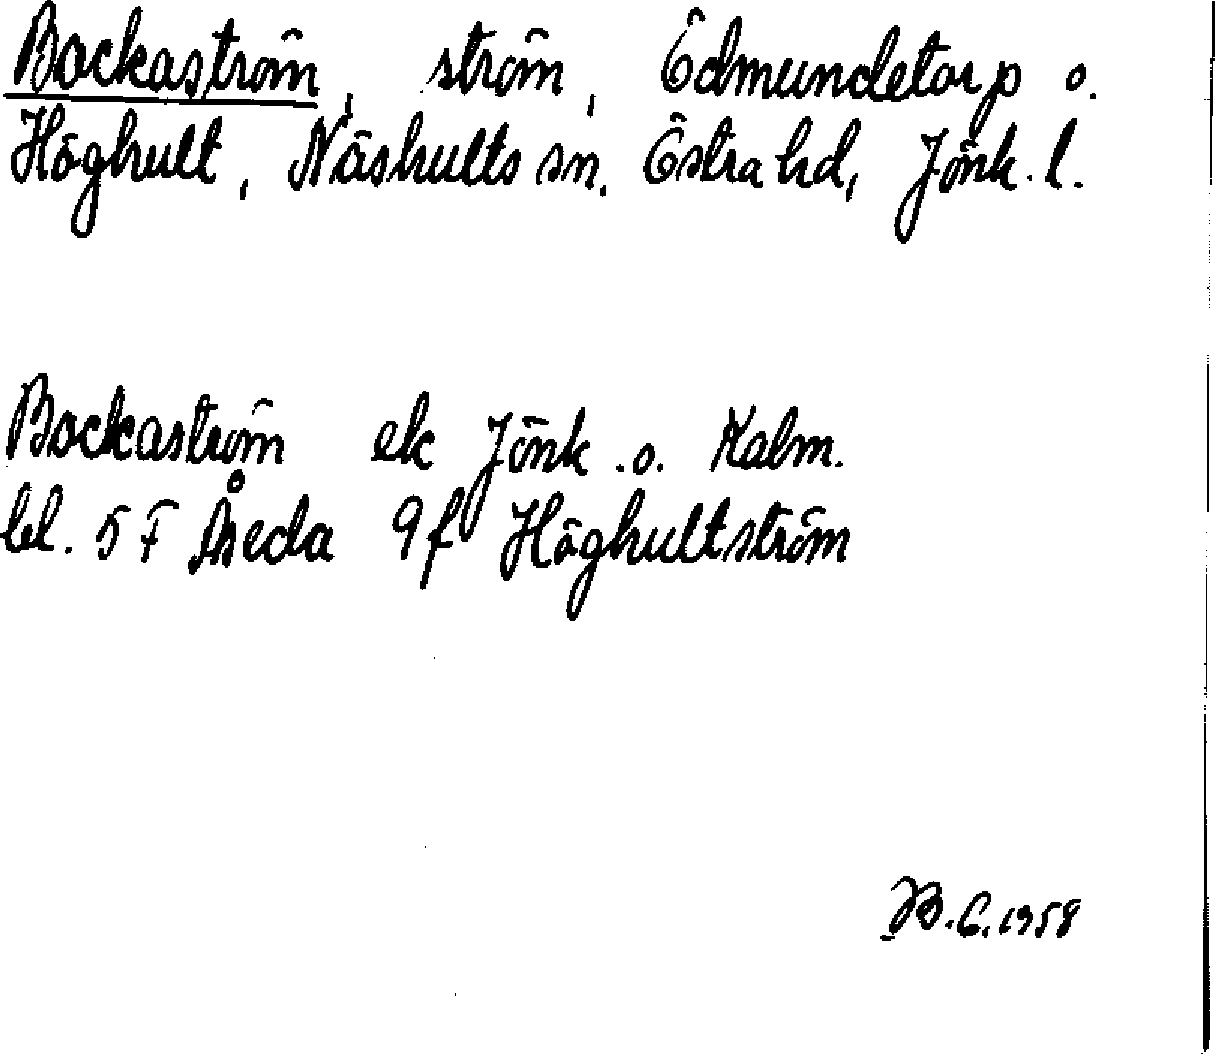 Bockaström, ström, Ödmundetorp o.
Höghult, Näshults sn. Östra hd, Jönk. l.
Bockaström ek Jönk. o. Kalm.
bl. 5 F Åseda 9f Höghultström
B. G. 1958